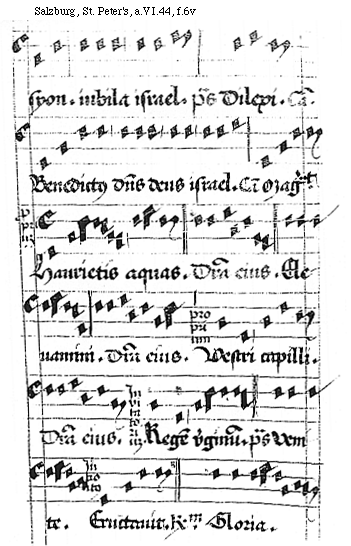 Salzburg, St. Peter's, a.VI.44, f.6v
syon. iubila israel. ps Dilexi. Ca
Benedictꝰ dns deus israel. Ca
Haurietis aquas. Dra eius. Ele
uamini. Dra eius. Vestri capilli.
Dra eius. Rege virginu. ps Veni
te. Eructauit. Gloria.